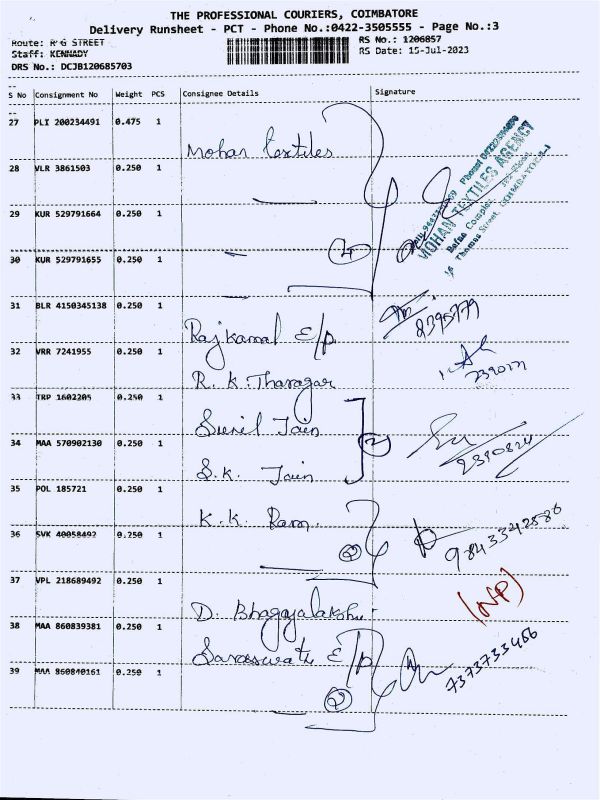 THE PROFESSIONAL COURIERS, COIMBATORE
Delivery Runsheet - PCT - Phone No.:0422-3505555 - Page No.:3
Route: R G STREET
RS No.: 1206857
Staff: KENNADY
RS Date: 15-Jul-2023
DRS No.: DCJB120685703
S No Consignment No Weight PCS Consignee Details Signature
27 PLI 200234491 0.475 1 Mohan Textiles
MOHAN TEXTILES AGENCY
Thomas Street, COIMBATORE-1
28 VLR 3861503 0.250 1
29 KUR 529791664 0.250 1
30 KUR 529791655 0.250 1
31 BLR 4150345138 0.250 1 Rajkamal E/p 2395779
32 VRR 7241955 0.250 1 R. K. Tharagar
33 TRP 1602205 0.250 1 Sunil Jain
34 MAA 570902130 0.250 1 S.K. Jain 2390824
35 POL 185721 0.250 1 K.K. Ram.
36 SVK 40058492 0.250 1 9843342586
37 VPL 218689492 0.250 1 D. Bhagyalakshmi (NP)
38 MAA 860839381 0.250 1 Saraswathi E/p 7373733466
39 MAA 860840161 0.250 1